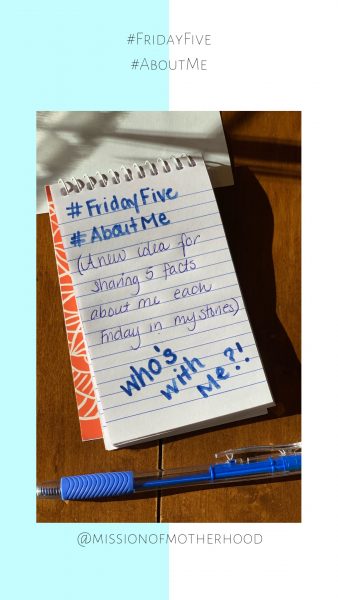 #FridayFive
#AboutMe
#FridayFive
#AboutMe
(A new idea for
sharing 5 facts
about me each
Friday in my stories)
who's
with
Me?!
@missionofmotherhood